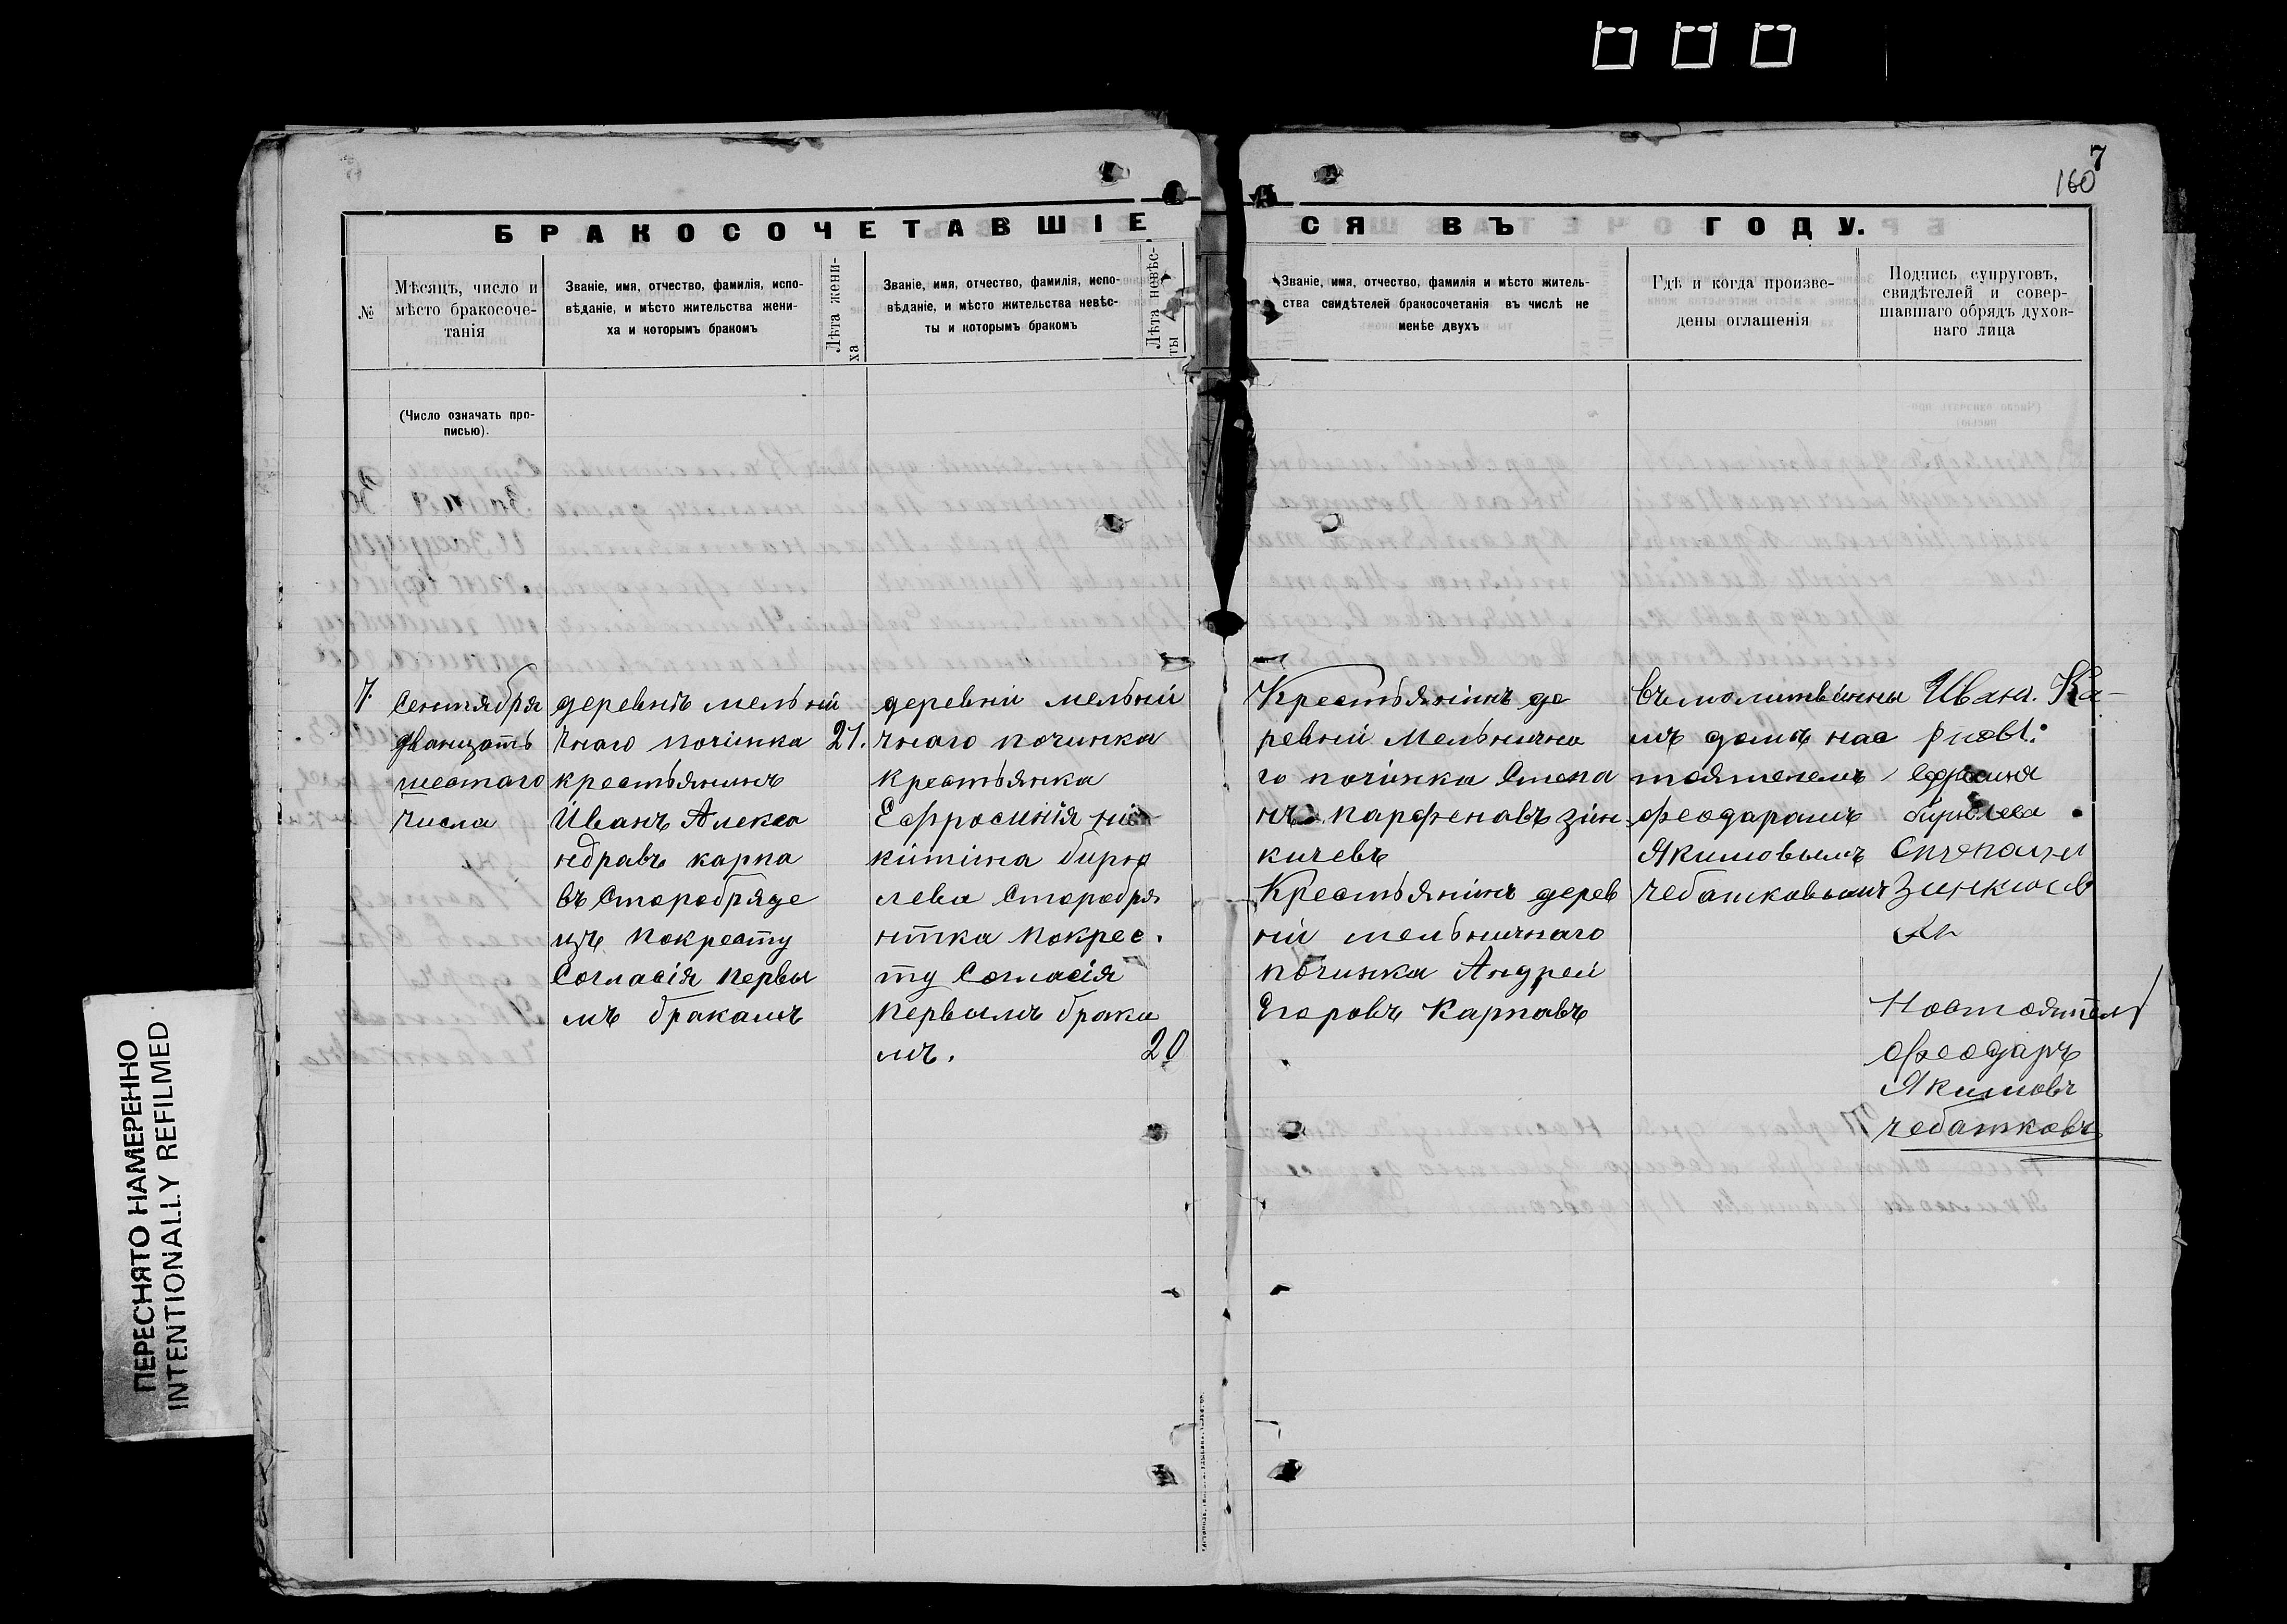 7
160
БРАКОСОЧЕТАВШІЕ СЯ ВЪ ГОДУ.
№
Мѣсяцъ, число и
мѣсто бракосоче-
танія
Званіе, имя, отчество, фамилія, испо-
вѣданіе, и мѣсто жительства жени-
ха и которымъ бракомъ
Лѣта жени-
ха
Званіе, имя, отчество, фамилія, испо-
вѣданіе, и мѣсто жительства невѣс-
ты и которымъ бракомъ
Лѣта невѣс-
ты
Званіе, имя, отчество, фамилія и мѣсто житель-
ства свидѣтелей бракосочетанія въ числѣ не
менѣе двухъ
Гдѣ и когда произве-
дены оглашенія
Подпись супруговъ,
свидѣтелей и совер-
шавшаго обрядъ духов-
наго лица
(Число означать про-
писью).
7.
Сентября
дванцать
шестаго
числа
деревнѣ мельни
чнаго почінка
крестьянинъ
Иванъ Алекса
ндравъ карпа
въ Старобряде
цъ покресту
Согласія первы
мъ бракамъ
21.
деревни мельни
чнаго починка
крестьянка
Ефросинія ни
китина бирю
лева Старобря
нтка покрес.
ту Согласія
первымъ брака
мъ.
20
Крестьянинъ де
ревни Мельнично
го починка Степа
нъ парфенавъ зин
кичевъ
Крестьянинъ дерев
ни мельничнаго
починка Андрей
Егоровъ Карпавъ
въ молитвенны
мъ доме нас
тоятелемъ
феодарамъ
Якимовымъ
чебатковымъ
Иванъ. Ка-
рповъ.
ефрасиня
бирюлева
Степанъ
Зинкичев
Настоятель
феодаръ
Якимовъ
чебатковъ
ПЕРЕСНЯТО НАМЕРЕННО
INTENTIONALLY REFILMED